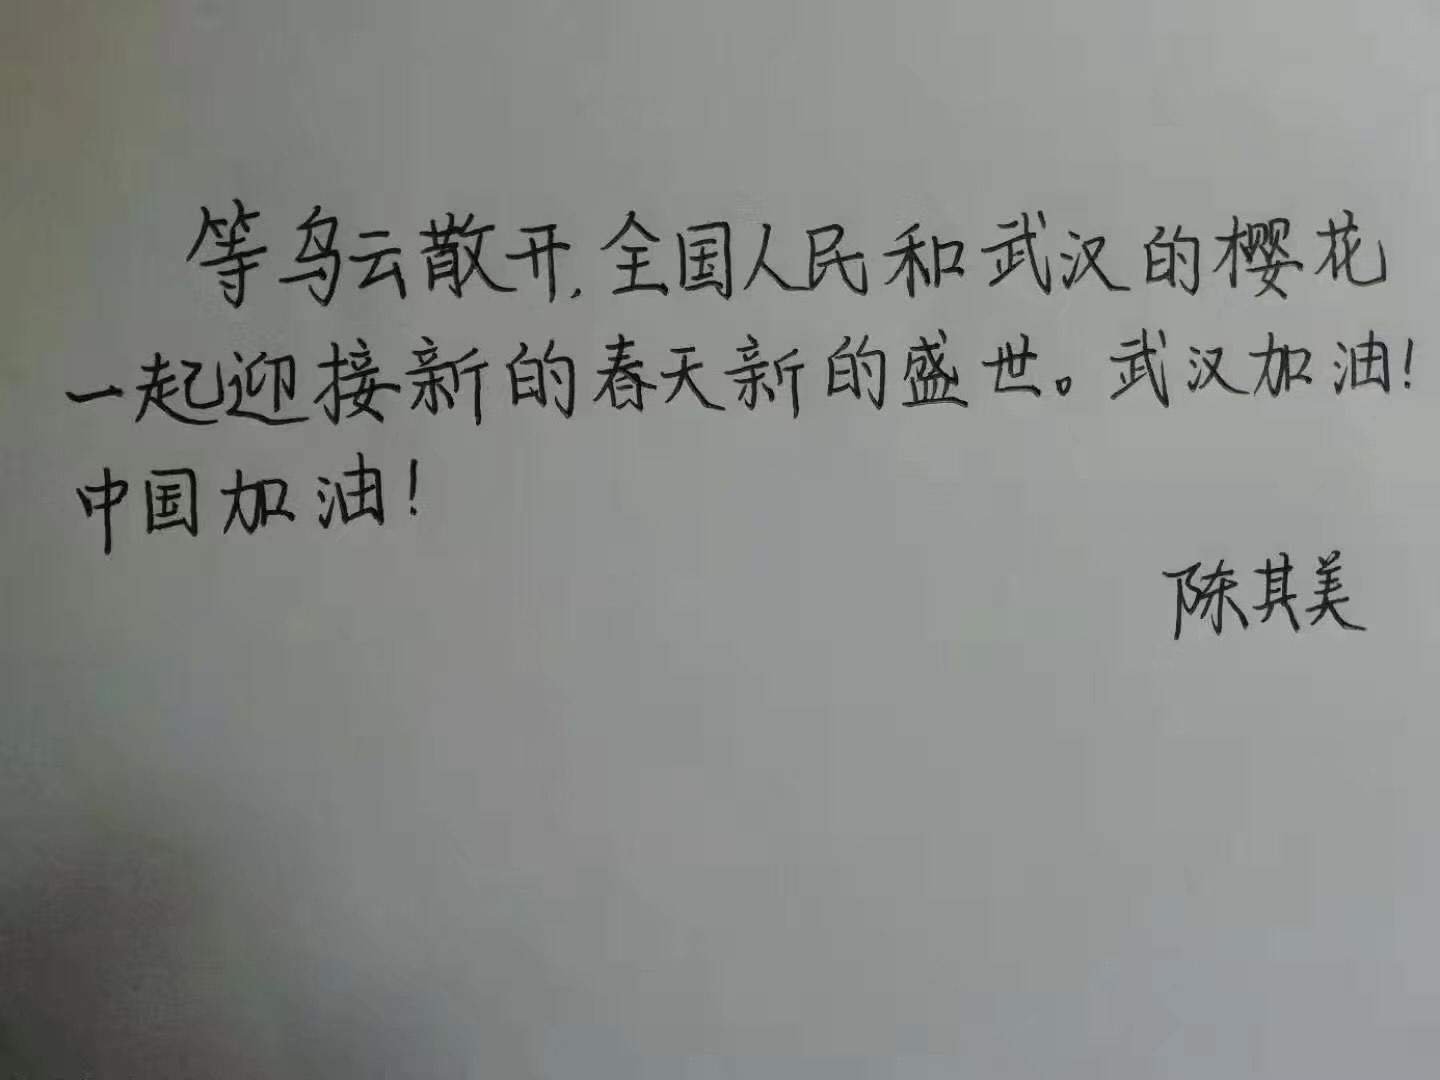 等乌云散开.全国人民和武汉的樱花
一起迎接新的春天新的盛世。武汉加油!
中国加油!
陈其美